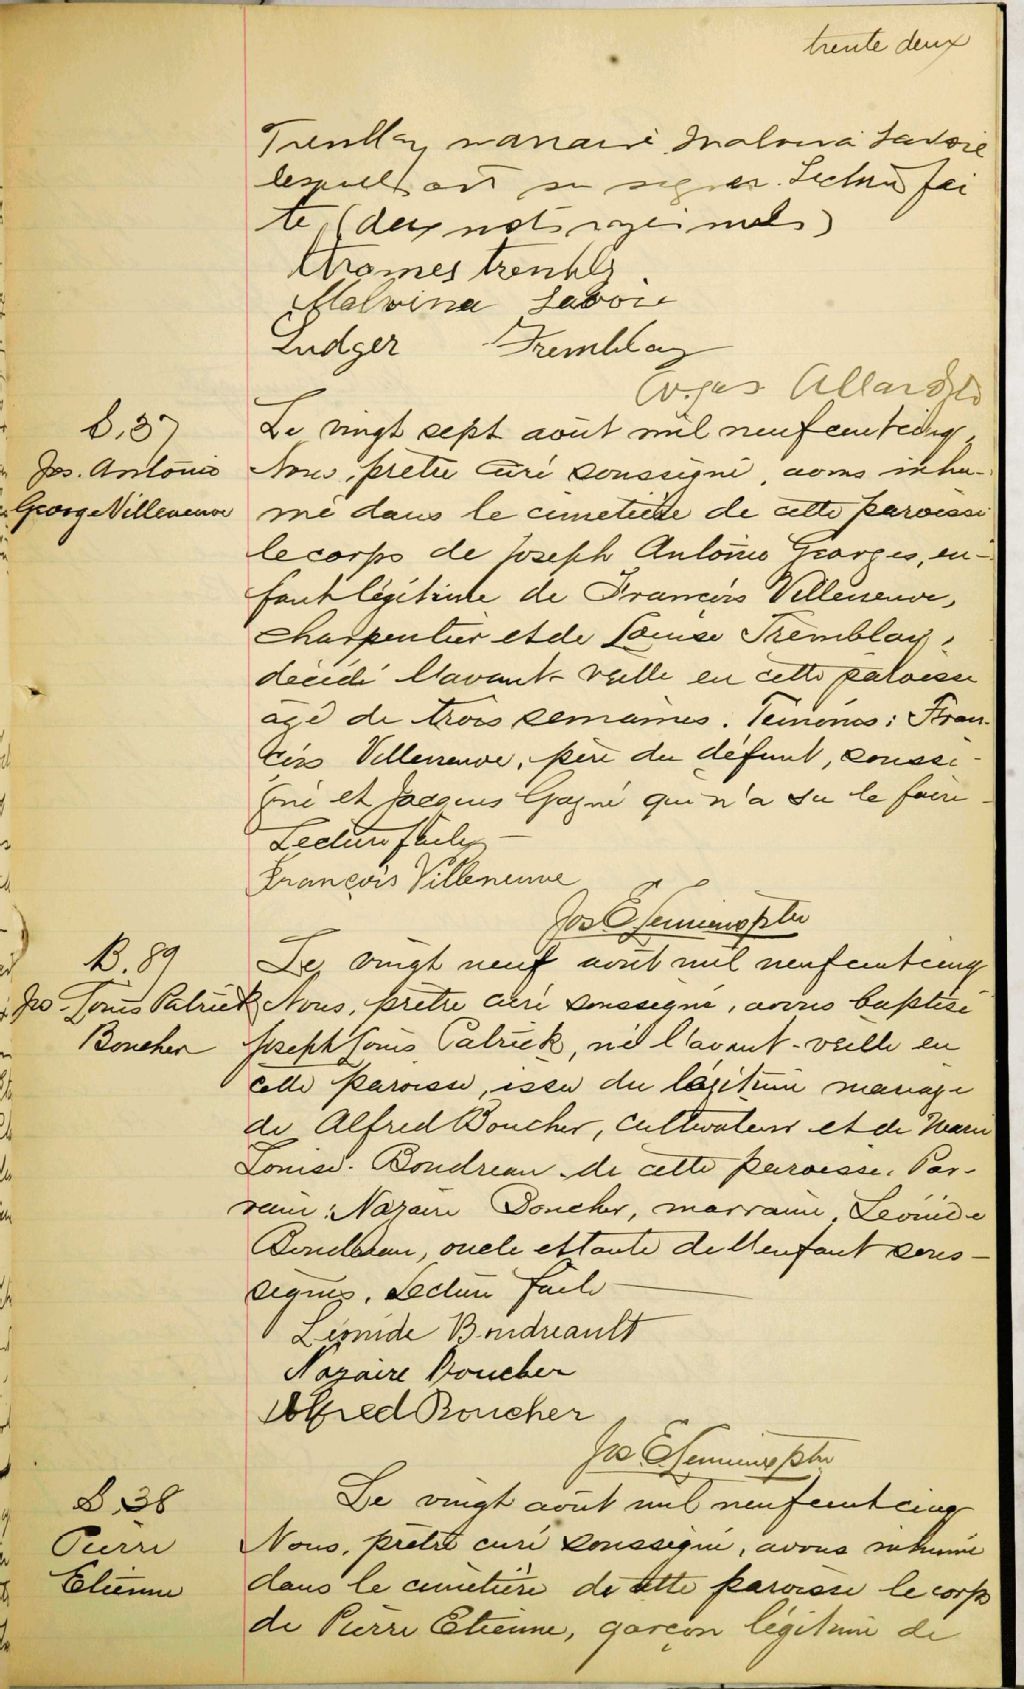 trente deux
Tremblay marraine Malvina Savoie
lesquels ont su signer. Lecture fai
te (deux mots rayés nuls)
Thomes trembly
Malvina Savoie
Ludger Tremblay
Allard
S. 37
Jos. Antonio
George Villeneuve
Le vingt sept août mil neuf cent cinq,
Nous, prêtre curé soussigné, avons inhu-
mé dans le cimetière de cette paroisse
le corps de Joseph Antonio Georges, en-
fant légitime de François Villeneuve,
charpentier et de Louise Tremblay,
décédé l'avant-veille en cette paroisse
âgé de trois semaines. Témoins: Fran-
çois Villeneuve, père du défunt, soussi-
gné et Jacques Gagné qui n'a su le faire
Lecture faite
François Villeneuve
Jos E Lemieux ptre
B. 89
Jos Louis Patrick
Boucher
Le vingt neuf août mil neuf cent cinq
Nous, prêtre curé soussigné, avons baptisé
Joseph Louis Patrick, né l'avant-veille en
cette paroisse, issu du légitime mariage
de Alfred Boucher, cultivateur et de Marie
Louise Boudreau de cette paroisse. Par-
rain: Nazaire Boucher, marraine, Léonide
Boudreau, oncle et tante de l'enfant sous-
signés. Lecture faite
Léonide Boudreault
Nazaire Boucher
Alfred Boucher
Jos E Lemieux ptre
S. 38
Pierre
Etienne
Le vingt août mil neuf cent cinq
Nous, prêtre curé soussigné, avons inhumé
dans le cimetière de cette paroisse le corps
de Pierre Etienne, garçon légitime de